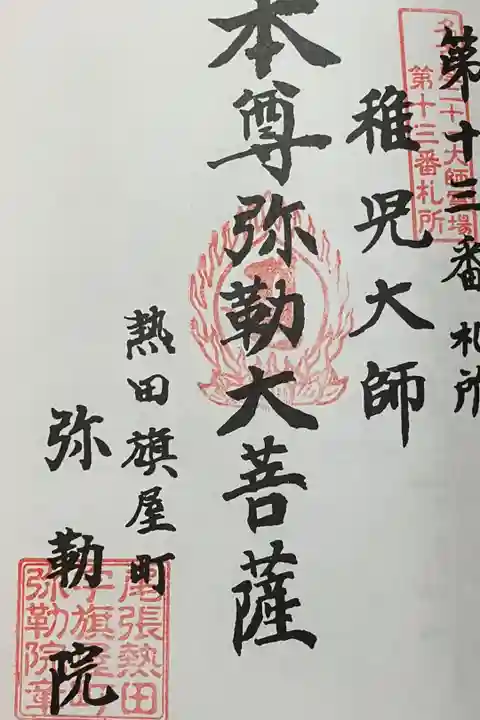 第十三番札所
稚児大師
本尊弥勒大菩薩
熱田旗屋町
弥勒院
大師霊場
第十三番札所
尾張熱田
字旗屋町
弥勒院章